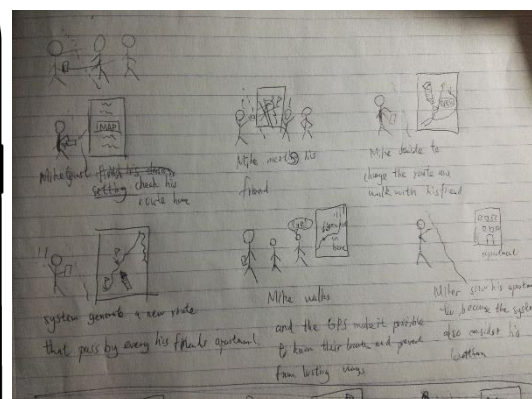 MAP
Mike just finish his
setting check his
route home
Mike meet his
friend
Mike decide to
change the route and
walk with his friend
system generate a new route
that pass by every his friends apartment
Mike walks
and the GPS make it possible
know their location and prevent
from losting ways
apartment
saw his
because the system
also his
location